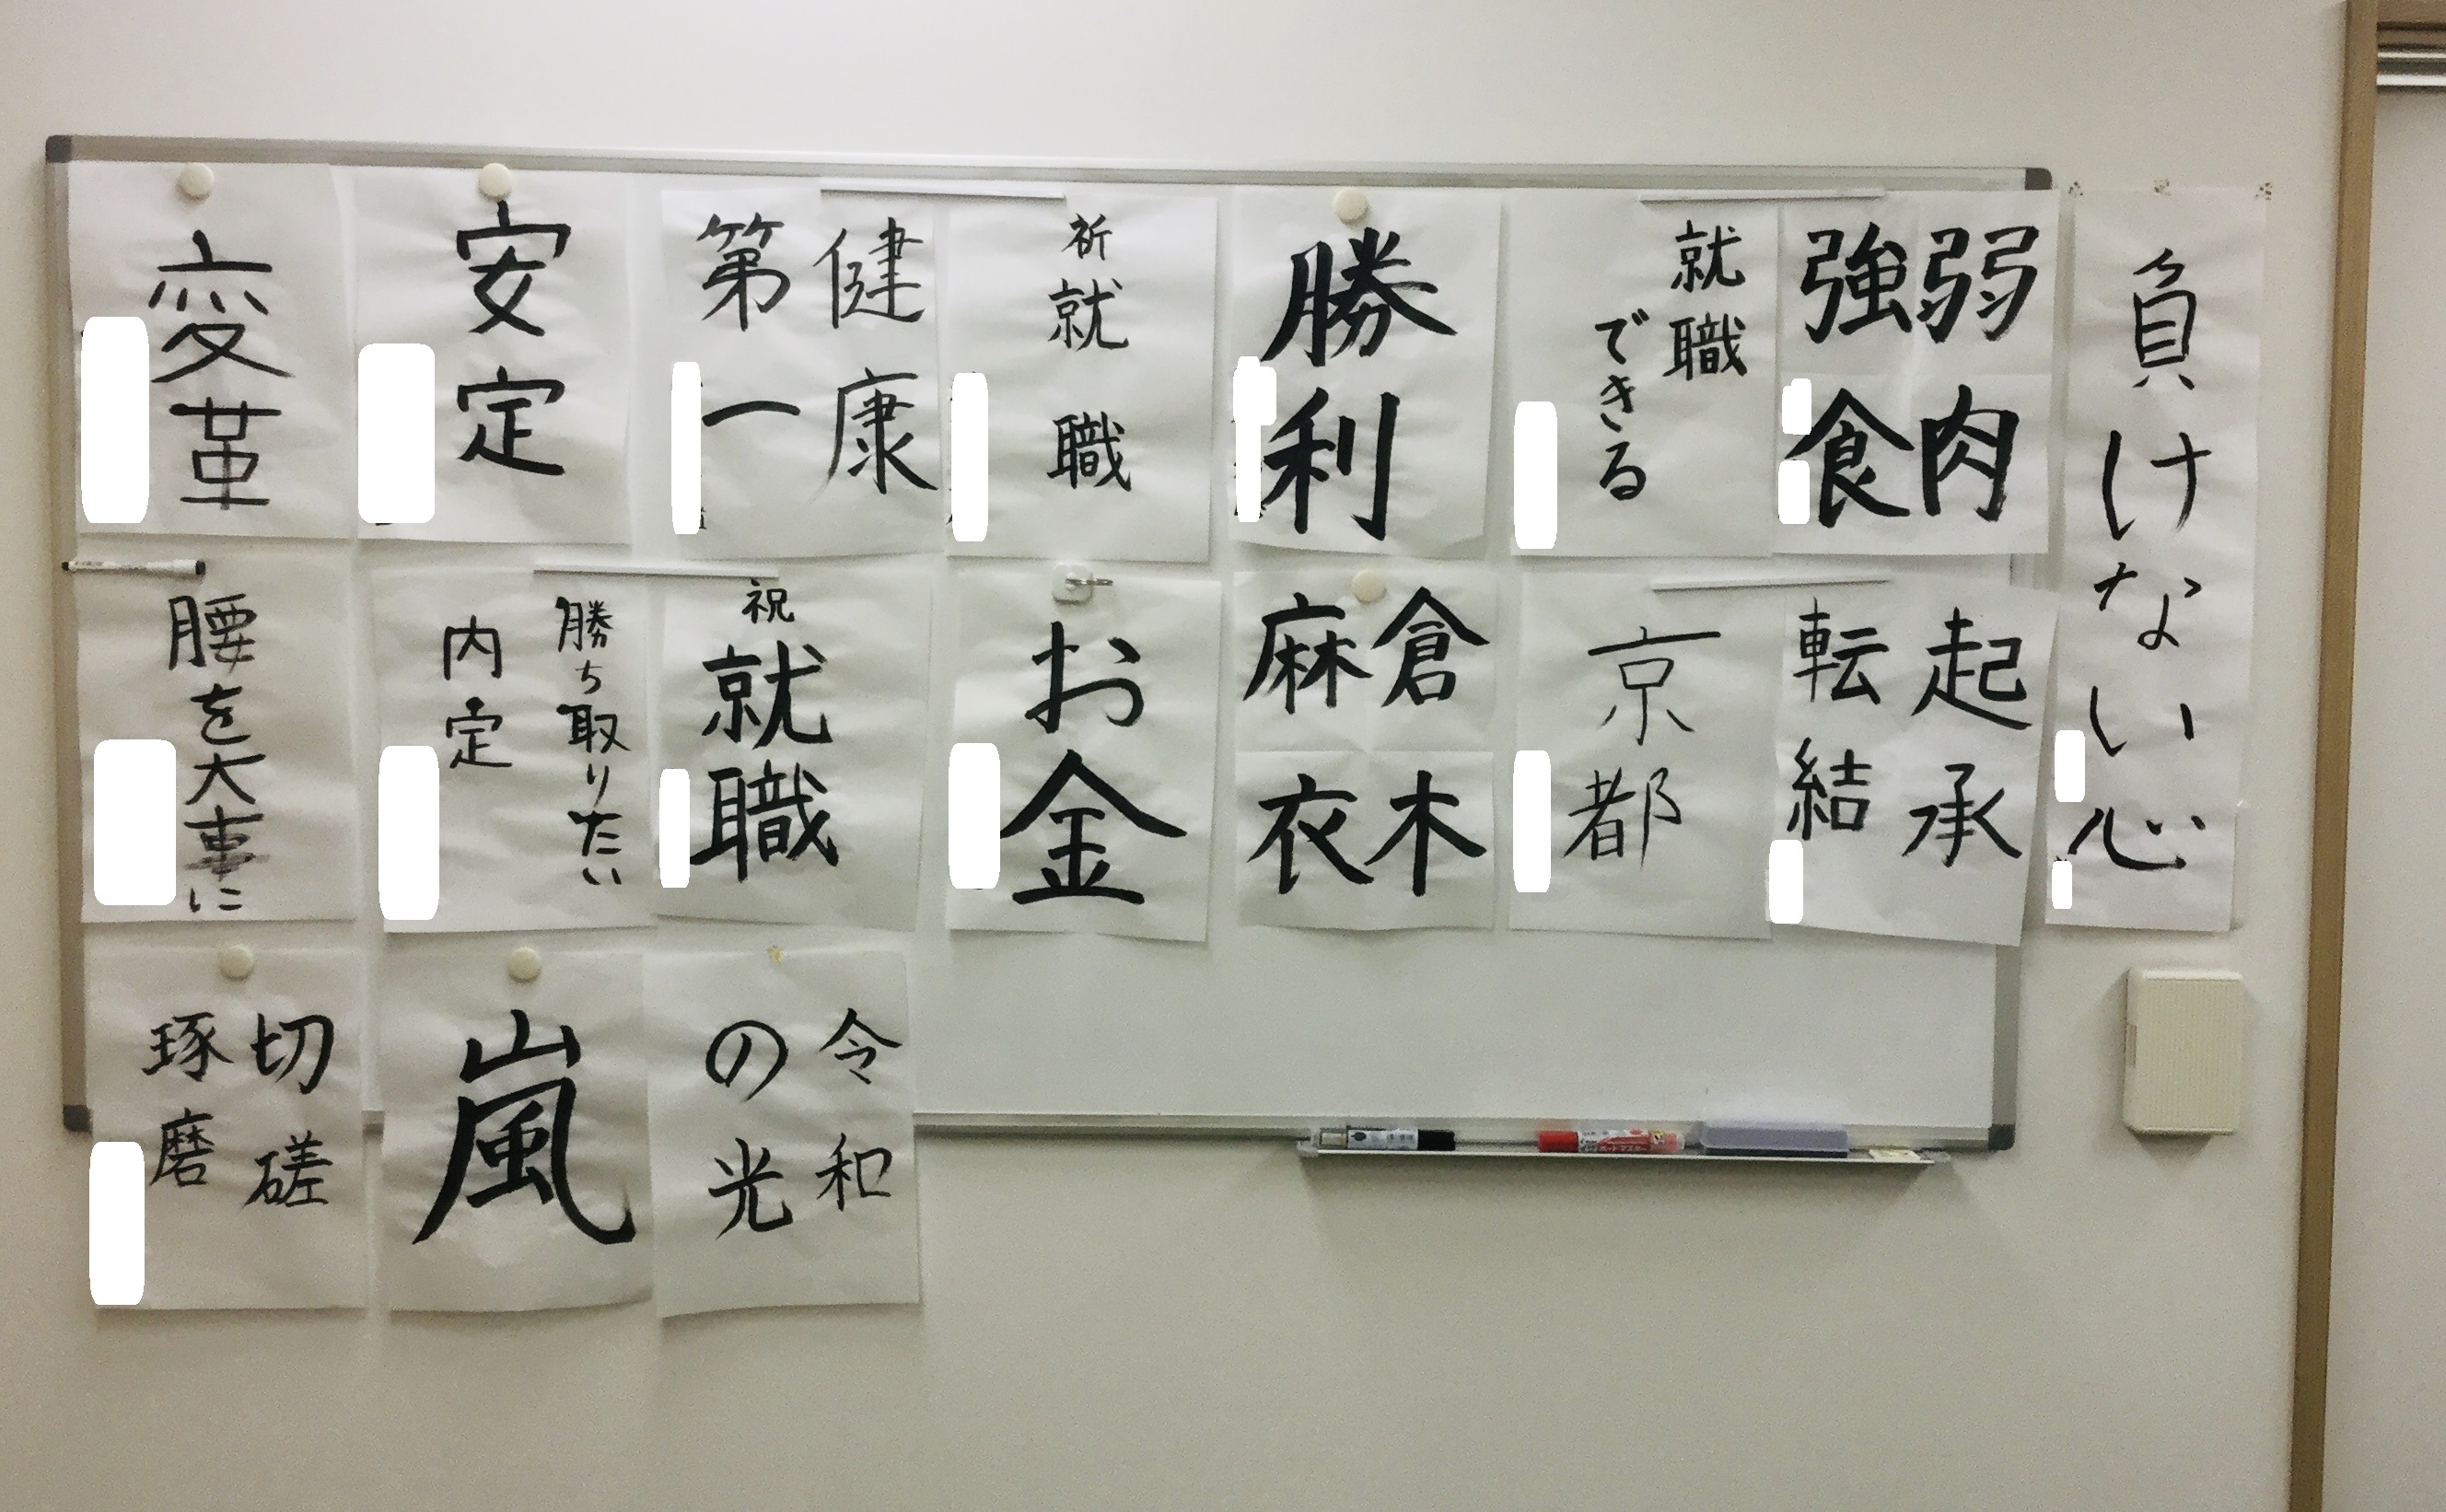 負けない心
弱肉
強食
就職
できる
勝利
祈
就職
健康
第一
安定
変革
起承
転結
京都
倉木
麻衣
お金
祝
就職
勝ち取りたい
内定
腰を大事に
令和
の光
嵐
切磋
琢磨